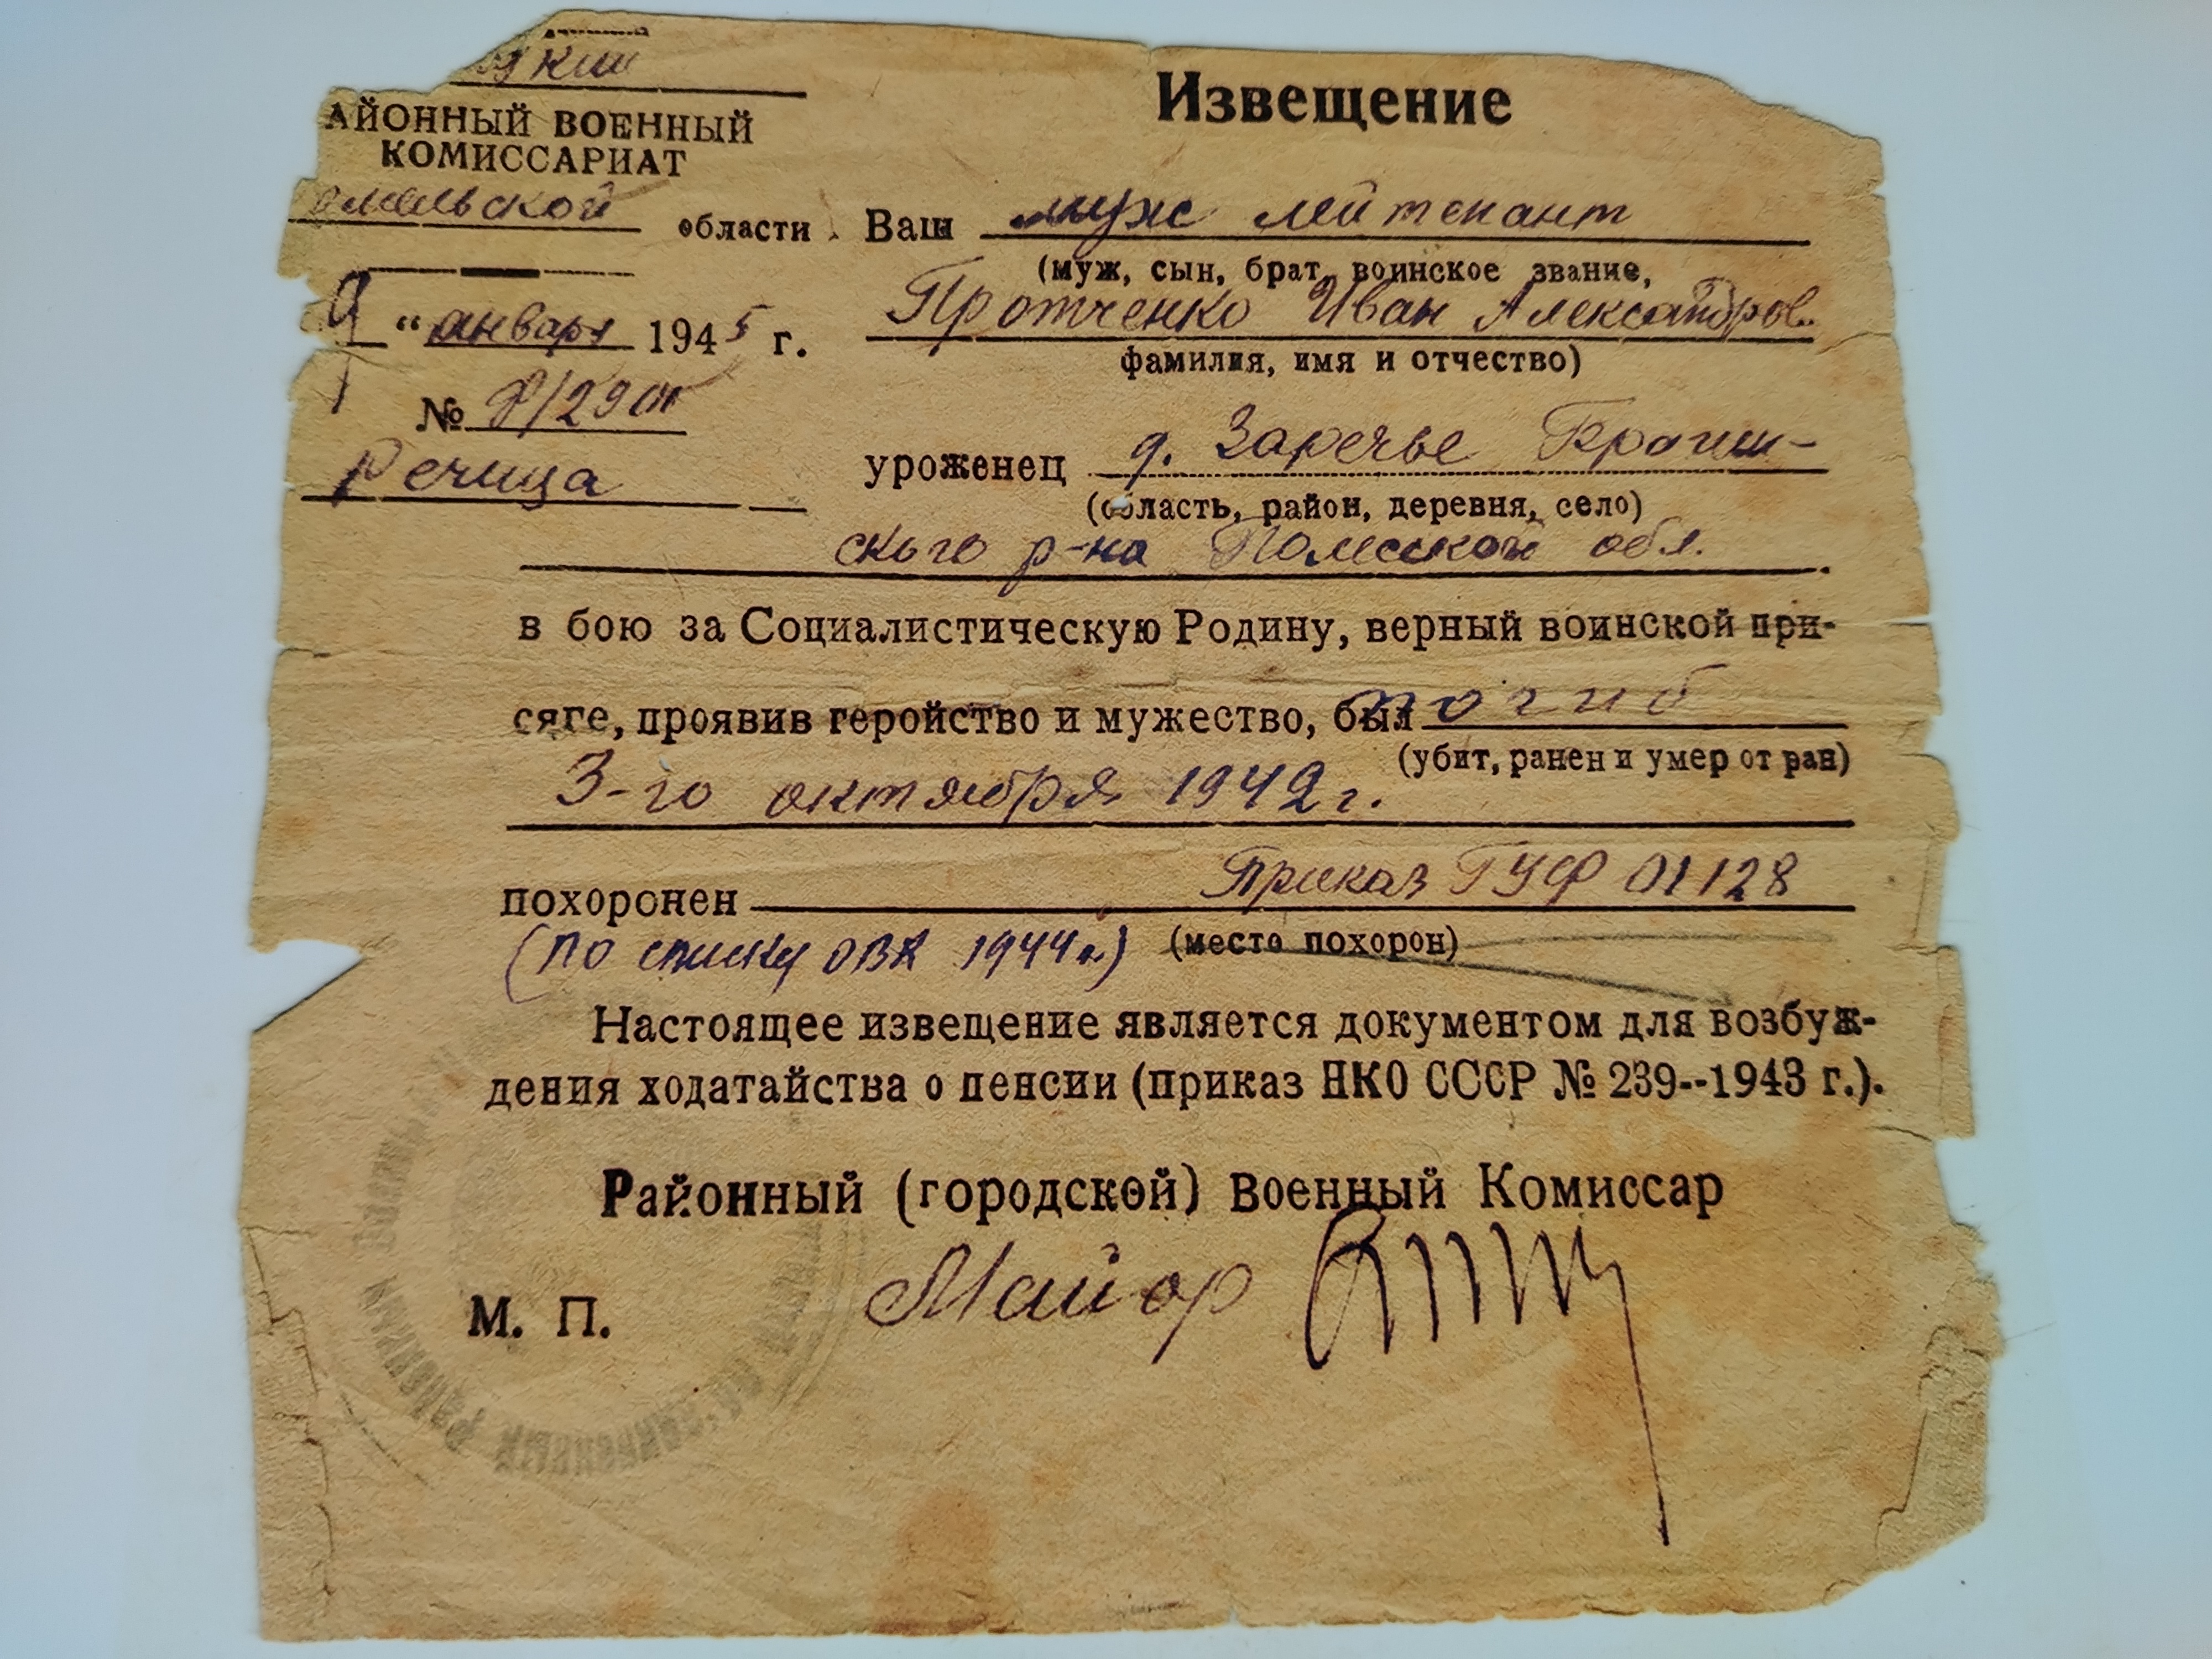 Извещение
АЙОННЫЙ ВОЕННЫЙ
КОМИССАРИАТ
омельской области
Ваш муж лейтенант
(муж, сын, брат, воинское звание,
Протченко Иван Александров.
фамилия, имя и отчество)
9 " январь 1945 г.
№
Речица
уроженец д. Заречье Брагин-
(область, район, деревня, село)
ского р-на Полесской обл.
в бою за Социалистическую Родину, верный воинской при-
сяге, проявив геройство и мужество, был погиб
(убит, ранен и умер от ран)
3-го октября 1942 г.
похоронен Приказ ГУФ 01128
(по списку ОВК 1944 г.) (место похорон)
Настоящее извещение является документом для возбуж-
дения ходатайства о пенсии (приказ НКО СССР № 239--1943 г.).
Районный (городской) Военный Комиссар
М. П. Майор